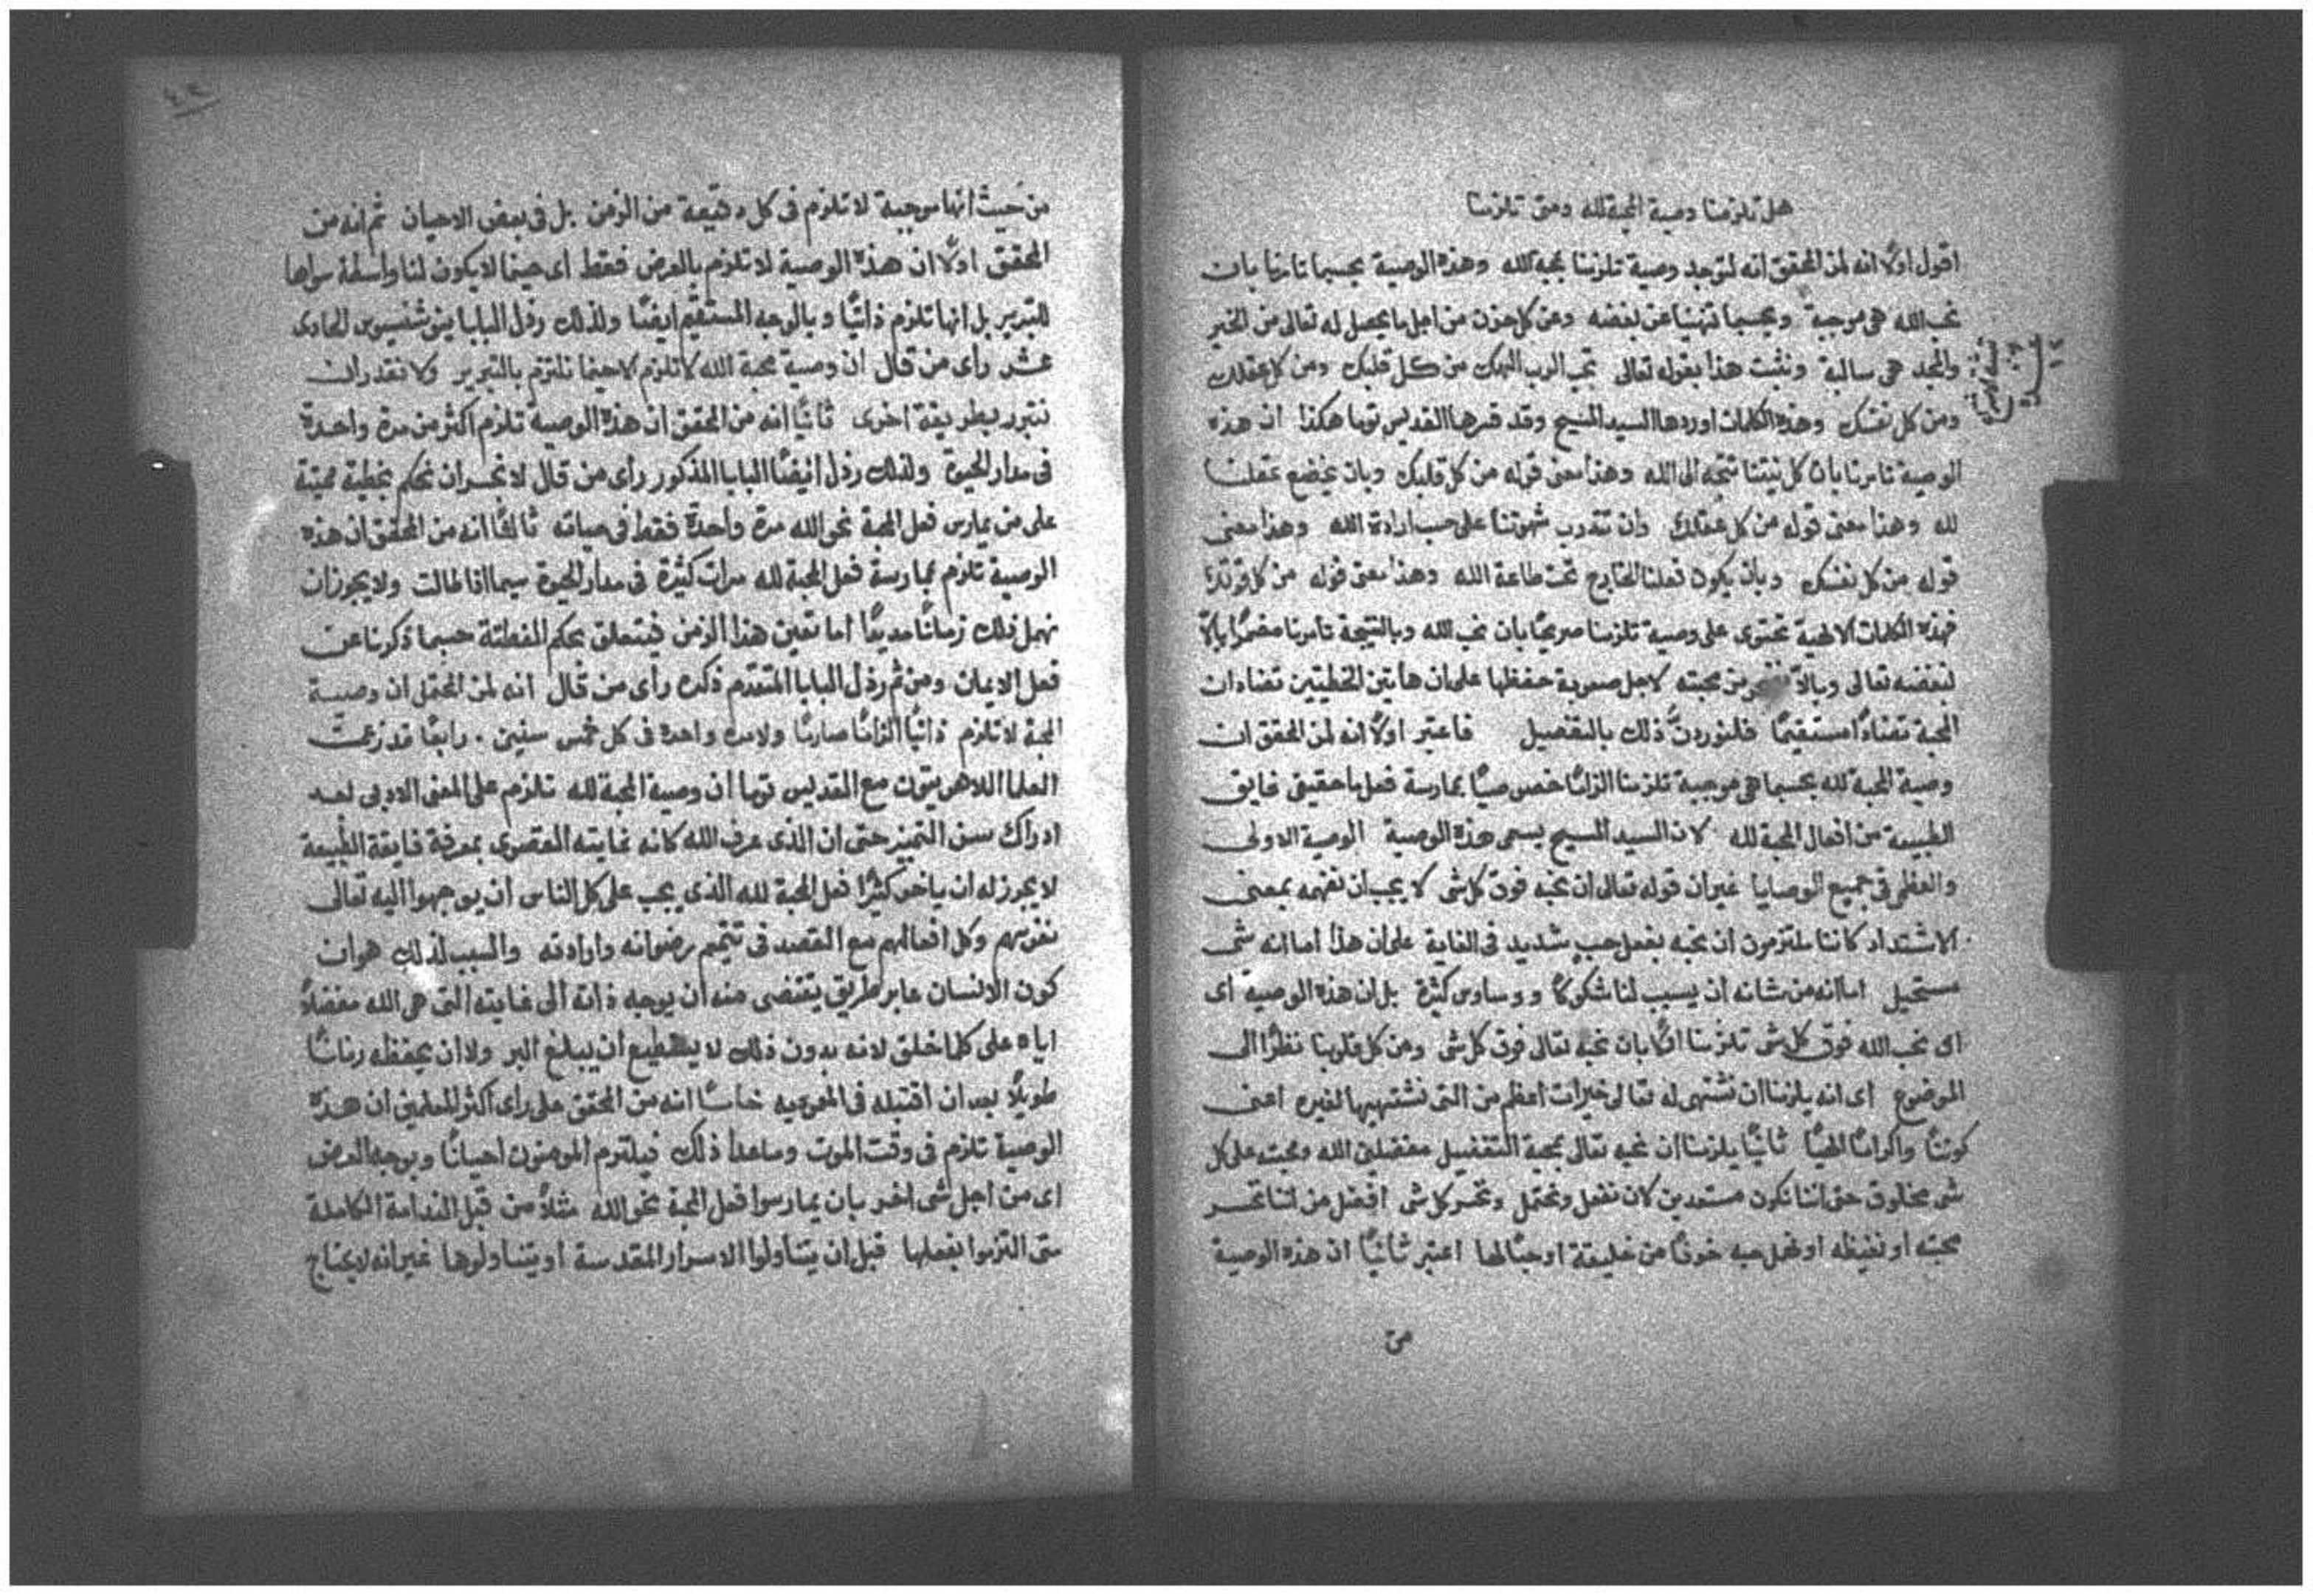 هل تلزمنا وصية المحبة لله ومتى تلزمنا
اقول اولاً انه لمن المحقق انه توجد وصية تلزمنا بمحبة الله وهذه الوصية بحسبما تامرنا بان
نحب الله هى موجبة وبحسبما تنهينا عن بغضه وعن كل حزن من اجل ما يحصل له تعالى من الخير
والمجد هى سالبة ونثبت هذا بقوله تعالى تحب الرب الهك من كل قلبك ومن كل عقلك
ومن كل نفسك وهذه الكلمات اوردها السيد المسيح وقد فسرها القديس توما هكذا ان هذه
الوصية تامرنا بان كل نيتنا تتجه الى الله وهذا معنى قوله من كل قلبك وبان يخضع عقلنا
لله وهذا معنى قوله من كل عقلك وان تتدرب شهوتنا على حسب ارادة الله وهذا معنى
قوله من كل نفسك وبان يكون فعلنا الخارج تحت طاعة الله وهذا معنى قوله من كل قوتك
فهذه الكلمات الالهية تحتوى على وصية تلزمنا صريحًا بان نحب الله وبالنتيجة تامرنا مضمرًا بالّا
نبغضه تعالى وبالّا محبته لاجل صعوبة حفظها علمان هاتين الخطيتين تضادان
المحبة تضادًا مستقيمًا فلنوردنّ ذلك بالتفصيل فاعتبر اولاً انه لمن المحقق ان
وصية المحبة لله بحسبما هى موجبة تلزمنا الزامًا خصوصيًا بممارسة فعل ما حقيقى فايق
الطبيعة من افعال المحبة لله لان السيد المسيح يسمى هذه الوصية الوصية الاولى
والعظمى فى جميع الوصايا غير ان قوله تعالى ان نحبه فوق كل شى لا يجب ان نفهمه بمعنى
الاشتداد كاننا ملتزمون ان نحبه بفعل حب شديد فى الغاية علمان هذا اما انه شى
مستحيل اما انه من شانه ان يسبب لنا شكوكًا ووساوس كثيرة بل ان هذه الوصية اى
اى نحب الله فوق كل شى تلزمنا اولاً بان نحبه تعالى فوق كل شى ومن كل قلوبنا نظرًا الى
الموضوع اى انه يلزمنا ان نشتهى له تعالى خيرات اعظم من التى نشتهيها لغيره اعنى
كونًا واكرامًا الهيًا ثانيًا يلزمنا ان نحبه تعالى بمحبة التفضيل مفضلين الله ومحبته على كل
شى مخلوق حتى اننا نكون مستعدين لان نفعل ونحتمل ونخسر كل شى افضل من اننا نخسر
محبته او نغيظه او نهمل حبه خوفًا من خليقة او حبًا لها اعتبر ثانيًا ان هذه الوصية
من
من حيث انها موجبة لا تلزم فى كل دقيقة من الزمن بل فى بعض الاحيان ثم انه من
المحقق اولاً ان هذه الوصية لا تلزم بالعرض فقط اى حينما لا يكون لنا واسطة سواها
للتبرير بل انها تلزم ذاتيًا وبالوجه المستقيم ايضًا ولذلك رذل البابا اينوشنسيوس الحادى
عشر راى من قال ان وصية محبة الله لا تلزم الا حينما نلتزم بالتبرير ولا نقدر ان
نتبرر بطريقة اخرى ثانيًا انه من المحقق ان هذه الوصية تلزم اكثر من مرة واحدة
فى مدار الحيوة ولذلك رذل ايضًا البابا المذكور راى من قال لا نجسر ان نحكم بخطية مميتة
على من يمارس فعل المحبة نحو الله مرة واحدة فقط فى حياته ثالثًا انه من المحقق ان هذه
الوصية تلزم بممارسة فعل المحبة لله مرات كثيرة فى مدار الحيوة سيما اذا طالت ولا يجوز ان
نهمل ذلك زمانًا مديدًا اما تعيين هذا الزمن فيتعلق بحكم الفطنة حسبما ذكرنا عن
فعل الايمان ومن ثم رذل البابا المتقدم ذكره راى من قال انه لمن المحتمل ان وصية
المحبة لا تلزم ذاتيًا الزامًا صارمًا ولا مرة واحدة فى كل خمس سنين. رابعًا قد زعمت
العلما اللاهوتيون مع القديس توما ان وصية المحبة لله تلزم على المعنى الادبى بعد
ادراك سن التمييز حتى ان الذى عرف الله كانه غايته القصوى بمعرفة فايقة الطبيعة
لا يجوز له ان ياخر كثيرًا فعل المحبة لله الذى يجب على كل الناس ان يوجهوا اليه تعالى
نفوسهم وكل افعالهم مع القصد فى تتميم رضوانه وارادته والسبب لذلك هو ان
كون الانسان عابر طريق يقتضى منه ان يوجه ذاته الى غايته التى هى الله مفضلاً
اياه على كلما خلق لانه بدون ذلك لا يستطيع ان يبلغ البر ولا ان يحفظه زمانًا
طويلاً بعد ان اقتبله فى المعمودية خامسًا انه من المحقق على راى اكثر المعلمين ان هذه
الوصية تلزم فى وقت الموت وماعدا ذلك فيلتزم المومنون احيانًا وبوجه العرض
اى من اجل شى اخر بان يمارسوا فعل المحبة نحو الله مثلاً من قبل الندامة الكاملة
متى التزموا بفعلها قبل ان يتناولوا الاسرار المقدسة او يتناولوها غير انه لا يحتاج